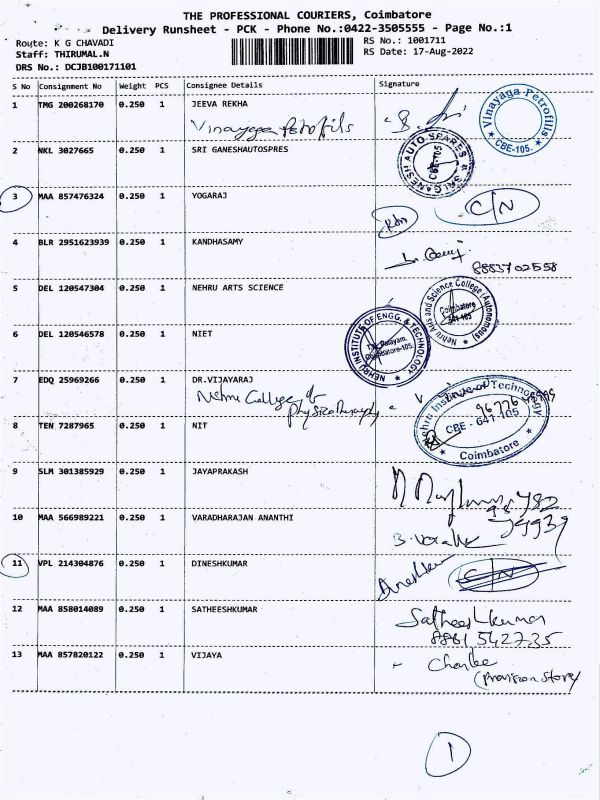 THE PROFESSIONAL COURIERS, Coimbatore
Delivery Runsheet - PCK - Phone No.:0422-3505555 - Page No.:1
Route: K G CHAVADI
RS No.: 1001711
Staff: THIRUMAL.N
RS Date: 17-Aug-2022
DRS No.: DCJB100171101
S No Consignment No Weight PCS Consignee Details Signature
1 TMG 200268170 0.250 1 JEEVA REKHA
Vinayaga Petrofils
Vinayaga Petrofils
CBE-105.
2 NKL 3027665 0.250 1 SRI GANESHAUTOSPRES
SRI GANESH AUTO SPARES
CBE-105
3 MAA 857476324 0.250 1 YOGARAJ
C/N
4 BLR 2951623939 0.250 1 KANDHASAMY
8883702558
5 DEL 120547304 0.250 1 NEHRU ARTS SCIENCE
Nehru Arts and Science College (Autonomous)
Coimbatore
641-105
6 DEL 120546578 0.250 1 NIET
NEHRU INSTITUTE OF ENGG. & TECHNOLOGY
Coimbatore-105.
7 EDQ 25969266 0.250 1 DR.VIJAYARAJ
Nehru College of
Physiotherapy
Nehru Institute of Technology
CBE - 641 105
Coimbatore
8 TEN 7287965 0.250 1 NIT
9 SLM 301385929 0.250 1 JAYAPRAKASH
10 MAA 566989221 0.250 1 VARADHARAJAN ANANTHI
11 VPL 214304876 0.250 1 DINESHKUMAR
Dineshkumar
C/N
12 MAA 858014089 0.250 1 SATHEESHKUMAR
Satheeshkumar
8861542735
13 MAA 857820122 0.250 1 VIJAYA
(Provision Store)
1